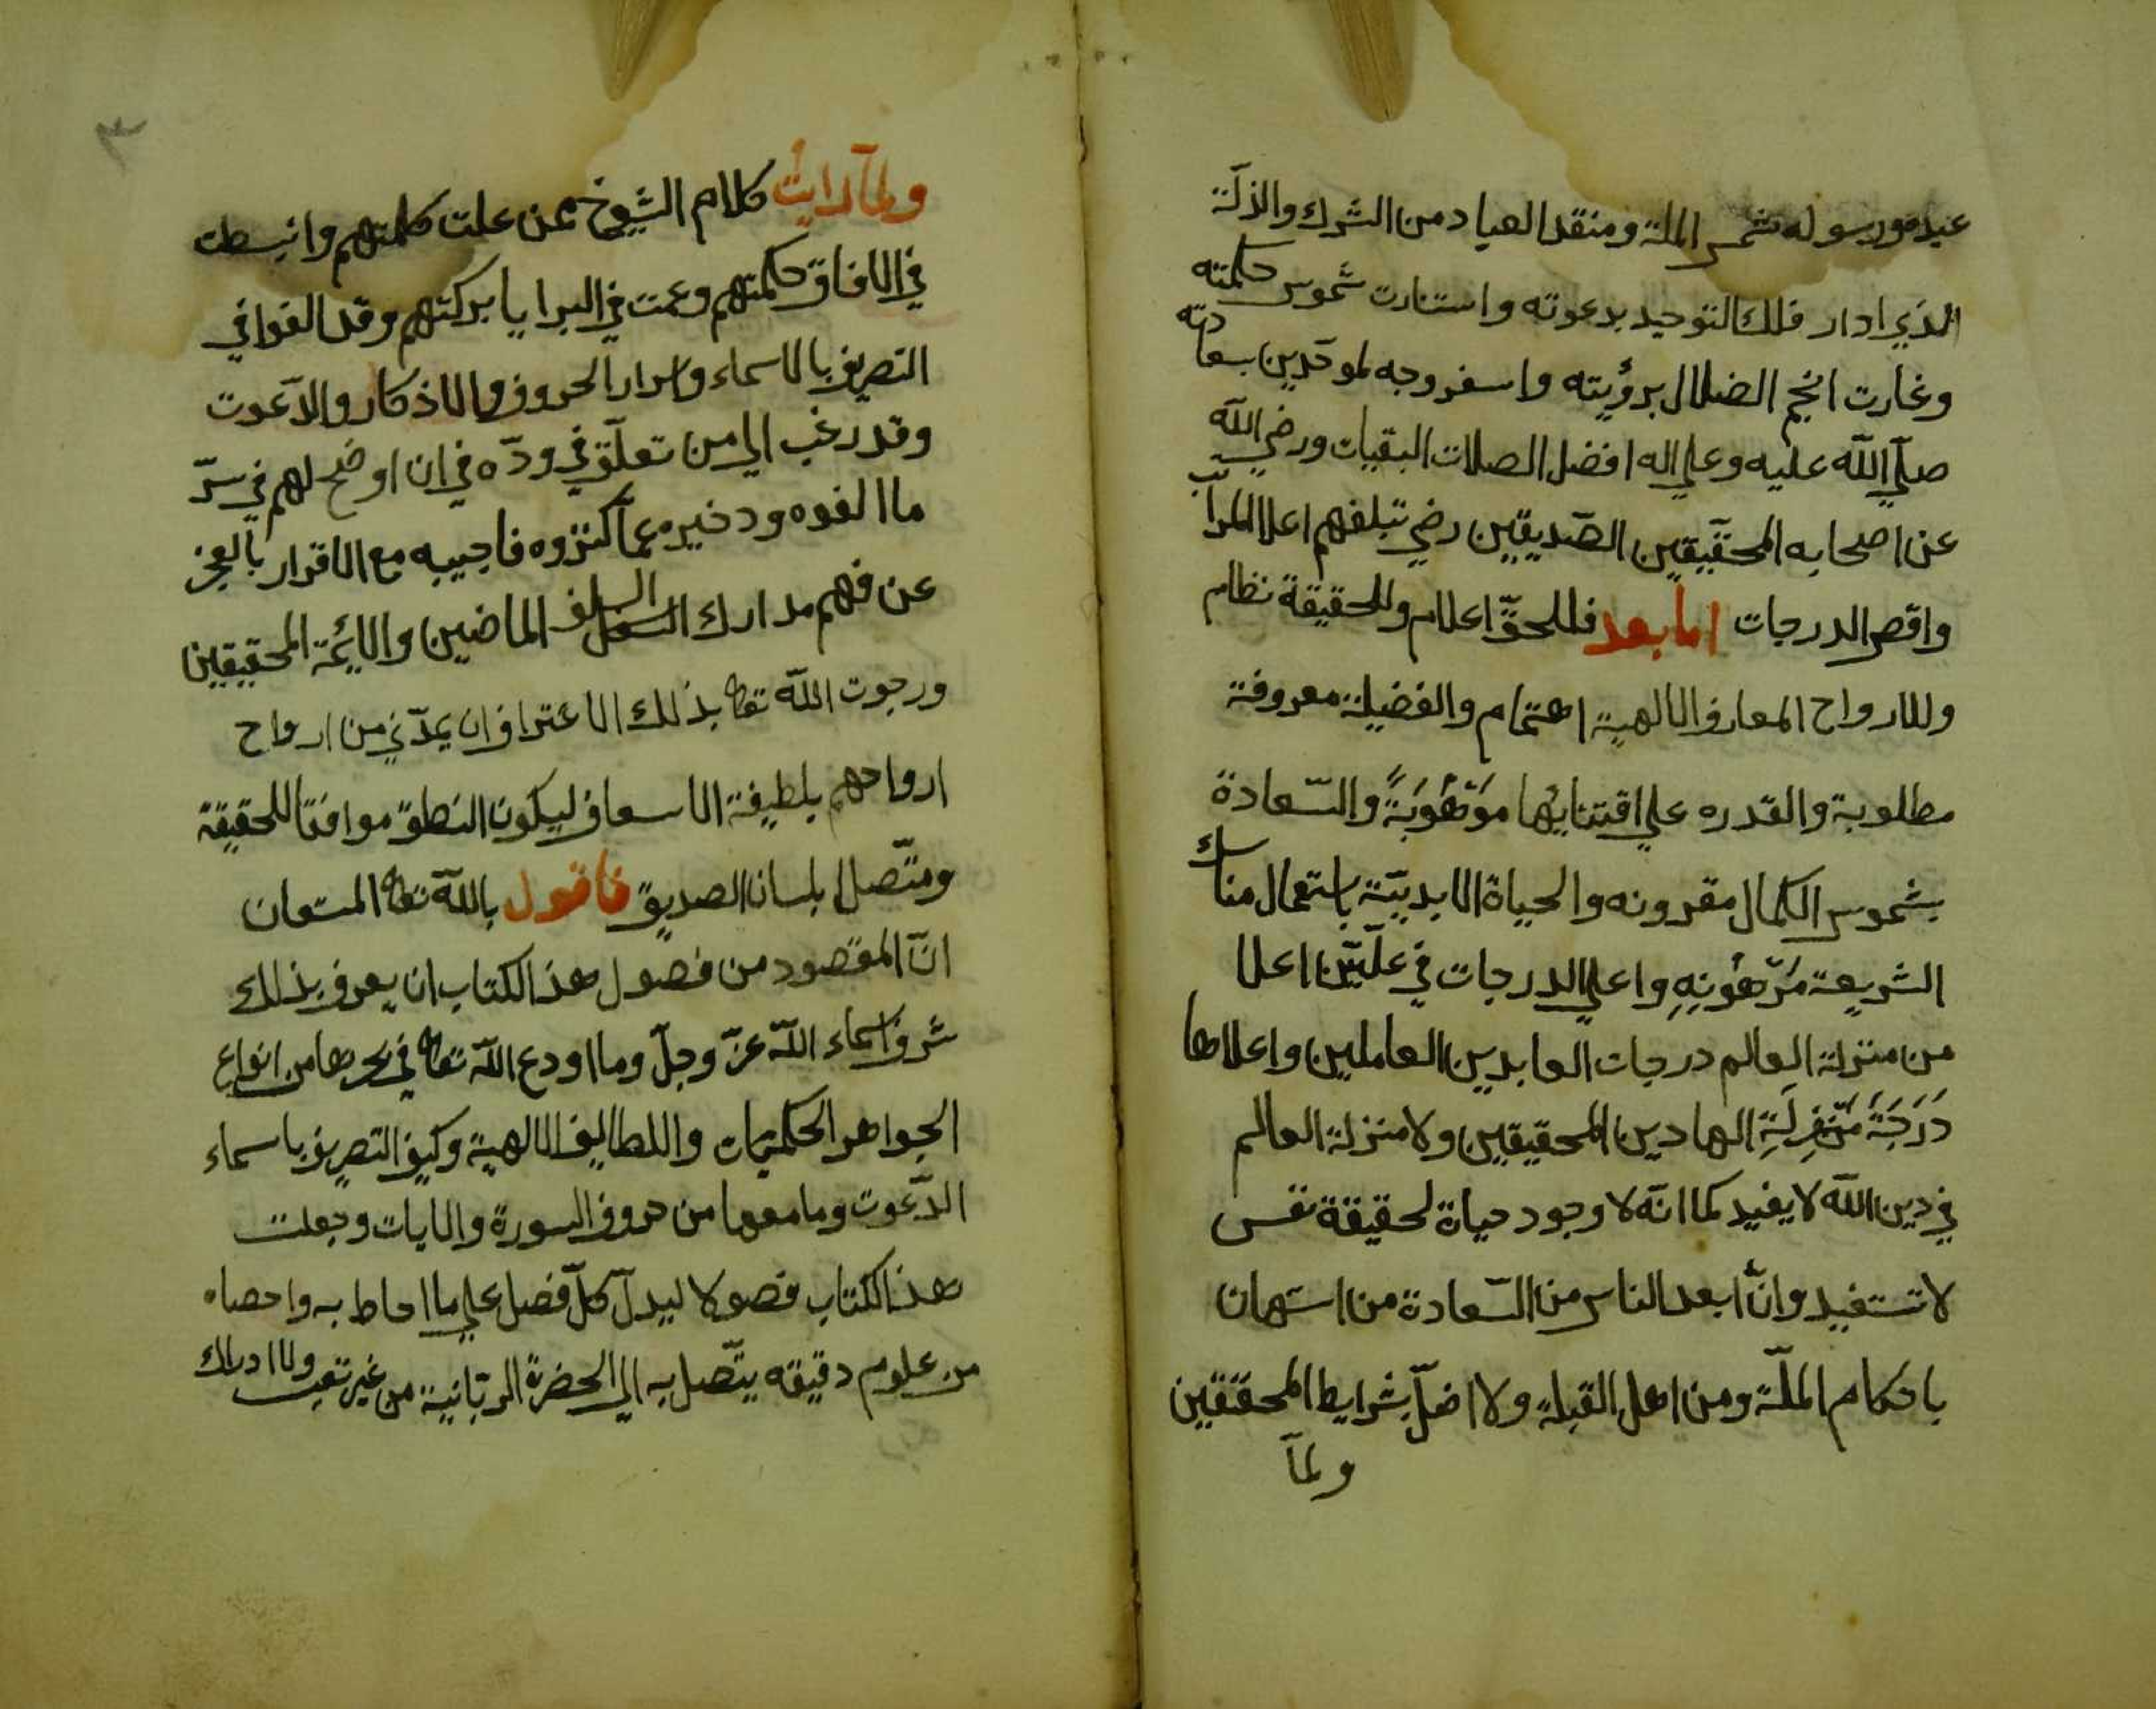 عبده ورسوله شمس الملة ومنقد العباد من الشرك والذلّة
الذي ادار فلك التوحيد بدعوته واستنارت شموس حكمته
وغارت انجم الضلال برؤيته واسفر وجه لموحّدين بسعادته
صلّي اللّه عليه وعلي اله افضل الصلات البقيات ورضي اللّه
عن اصحابه المحقّيقين الصّديقين رضي تبلغهم اعلا المراتب
واقص الدرجات امابعد فللحقّ اعلام وللحقيقة نظام
وللارواح المعارف الالهية اهتمام والفضيلة معروفة
مطلوبة والقدره علي اقتنايها مَوْهُوبَةً والسّعادة
بشموس الكمال مقرونه والحياة الابديّة باستعمال مناسك
الشريعة مَرْهُونِهِ واعلي الدرجات في علّيّن اعلا
من منزلة العالم درجات العابدين العاملين واعلاها
دَرَجَةً مَنْزِلَةِ الهادين المحقيقين ولا منزلة العالم
في دين اللّه لا يفيد كما انّه لا وجود حياة لحقيقة نفس
لا تستفيد وانّ ابعد الناس من السّعادة من استهان
باحكام الملّة ومن اهل القبلة ولا اخلّ بشرايط المحققين
ولمآ
٣
ولمآ رايتُ كلام الشيوخ ممن علت كلمتهم وانبسطت
في الافاق حكمتهم وعمت في البرايا بركتهم وقد الفوا في
التصريف بالاسماء واسرار الحروف والاذكار والدّعوت
وقد رغب الي من تعلّق في ودّه في ان اوضح لهم في سرّ
ما الفوه ودخيره عمّا كنزوه فاجيبه مع الاقرار بالعجز
عن فهم مدارك السلف الماضين والائمة المحقيقين
ورجوت اللّه تعا بذلك الاعتراف ان يمدّني من ارواح
ارواحهم بلطيفة الاسعاف ليكون النطق موافقا للحقيقة
ومتّصلا بلسان الصديق فاقول باللّه تعا المستعان
انّ المقصود من فصول هذ الكتاب ان يعرف بذلك
شرف اسماء اللّه عزّ وجلّ وما اودع اللّه تعا في بحرها من انواع
الجواهر الحكميات واللطايف الالهية وكيف التصريف باسماء
الدّعوت وما معها من حروف السورة والايات وجعلت
هذ الكتاب فصولا ليدلّ كلّ فصل علي ما احاط به واحصاه
من علوم دقيقه يتّصل به الي الحضرة الربّانية من غير تعب ولا ادراك